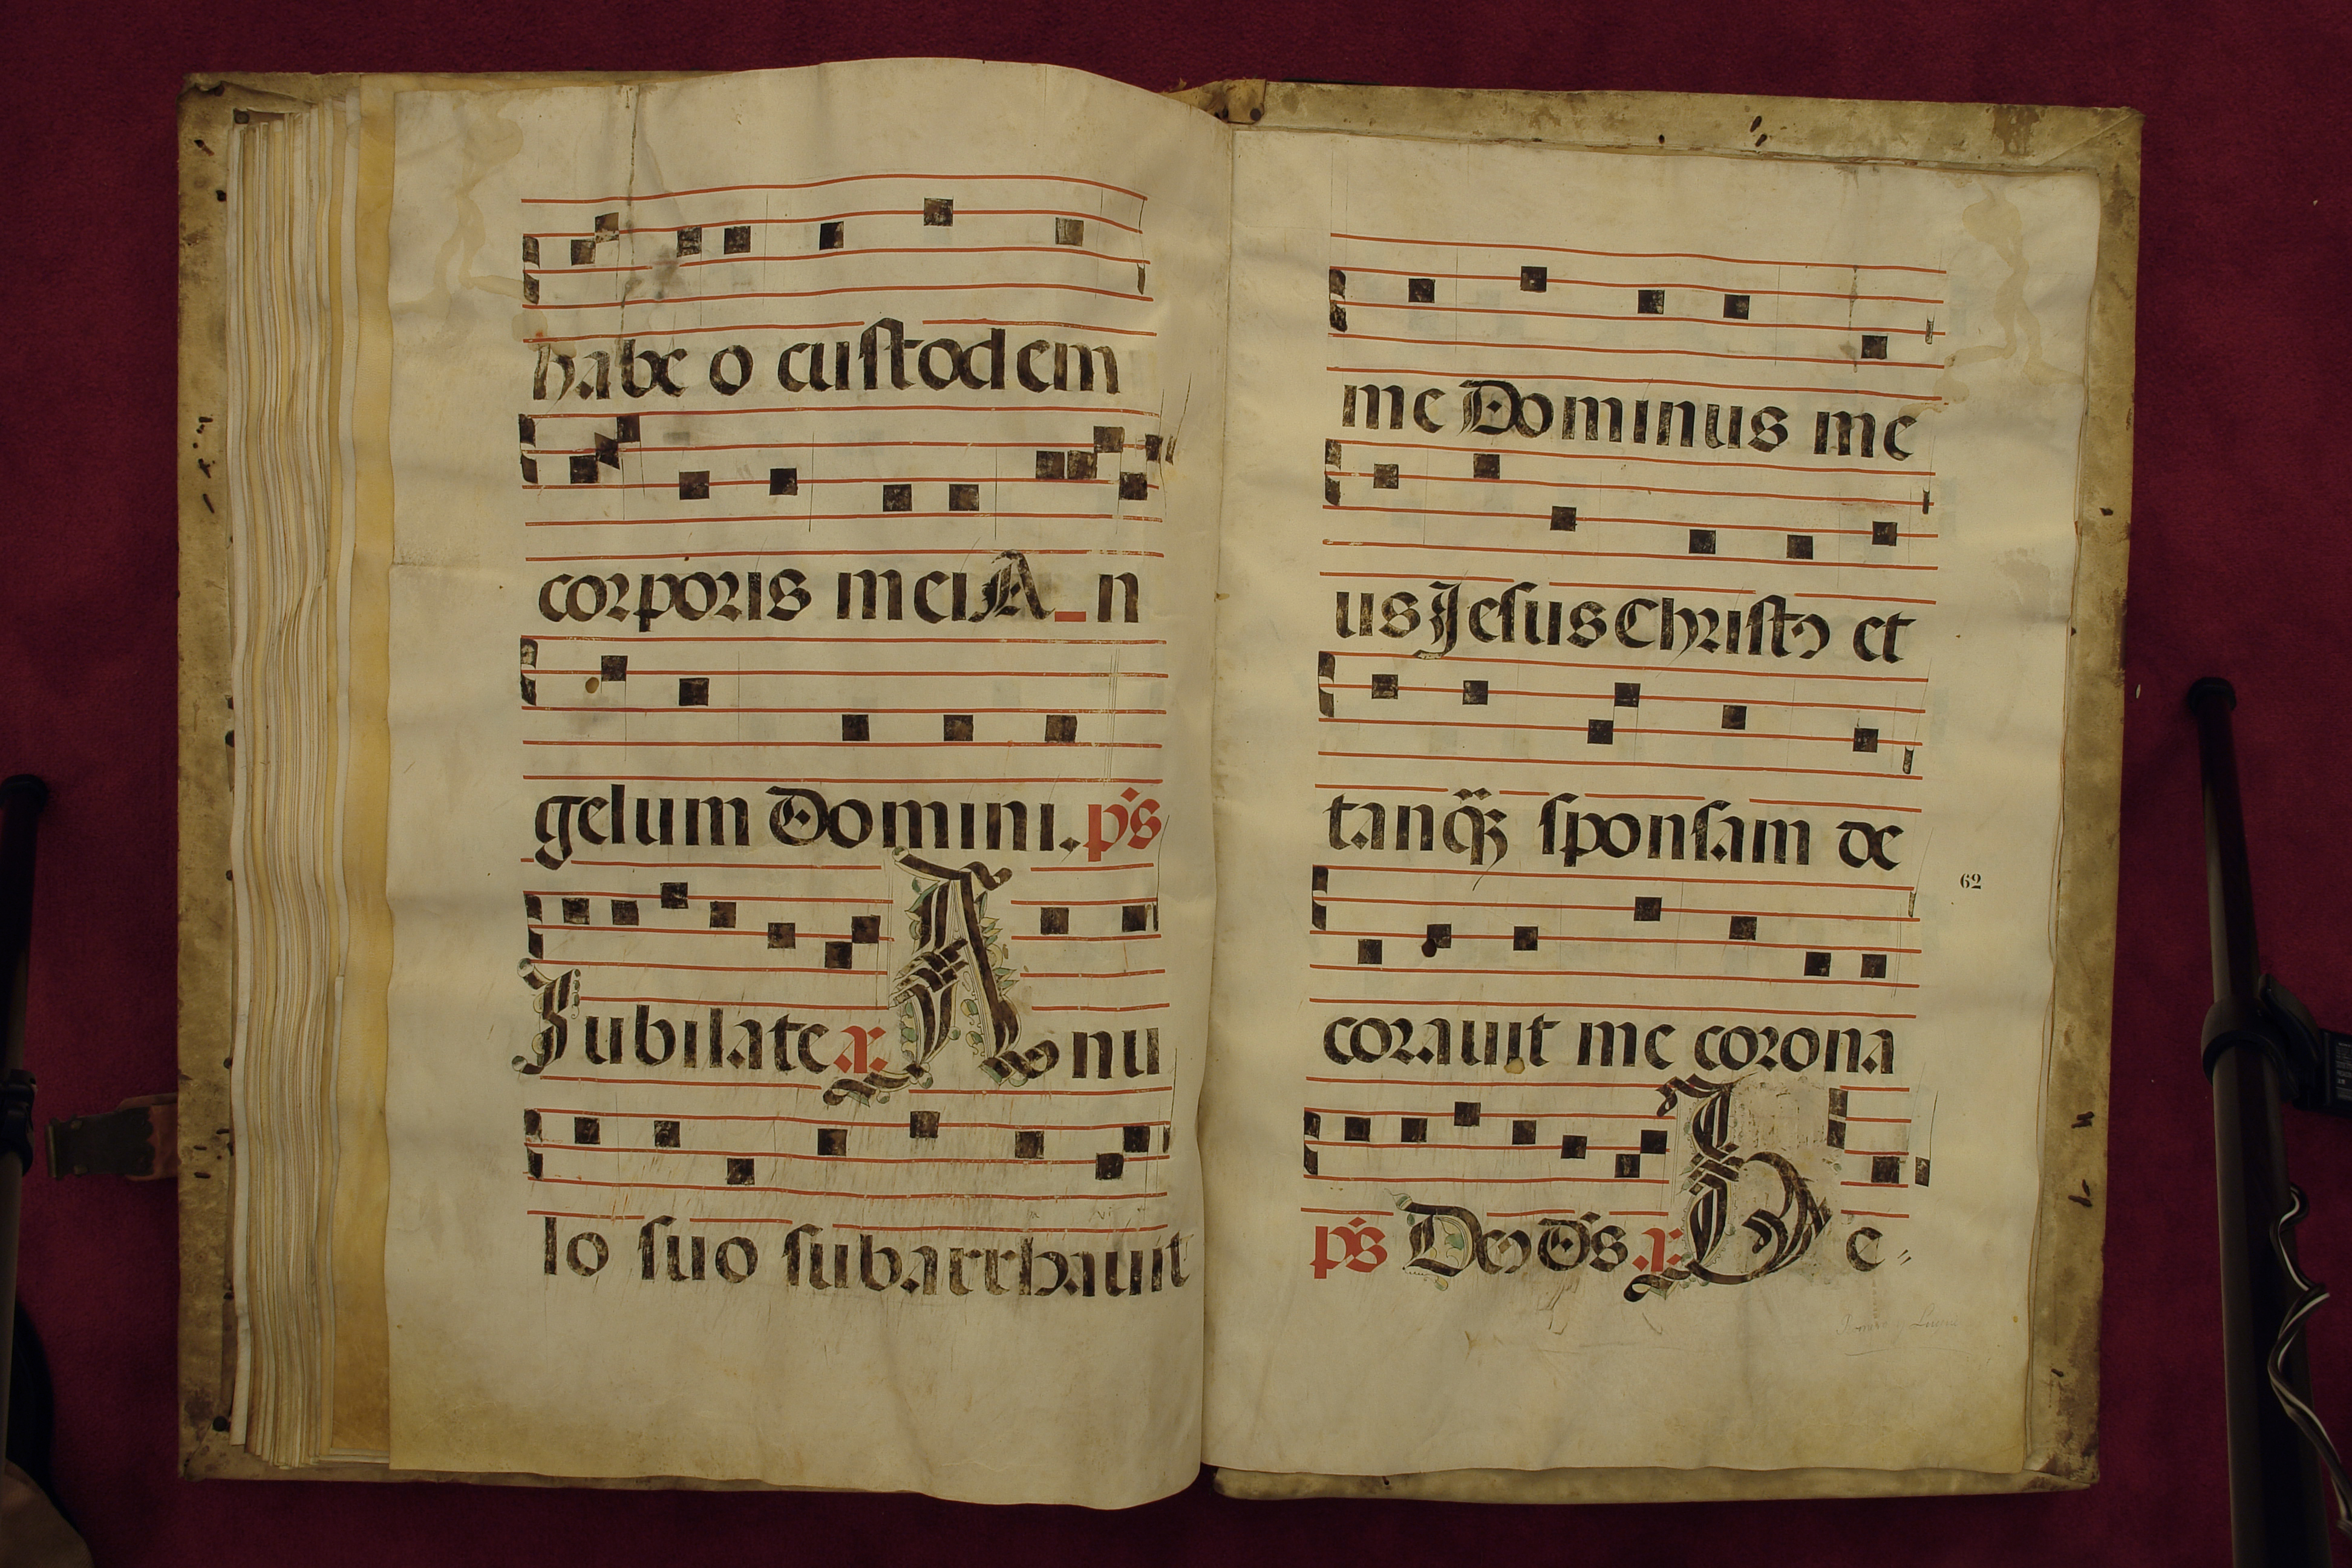 habe o custodem
corporis mei A_n
gelum Domini. ps̄
Jubilate a: Anu
lo suo subarrhavit
me Dominus me
us Jesus Christꝰ et
tanq̃ȝ sponsam de
coravit me corona
62
ps̄ Deꝰ Ds̄ a: Be-